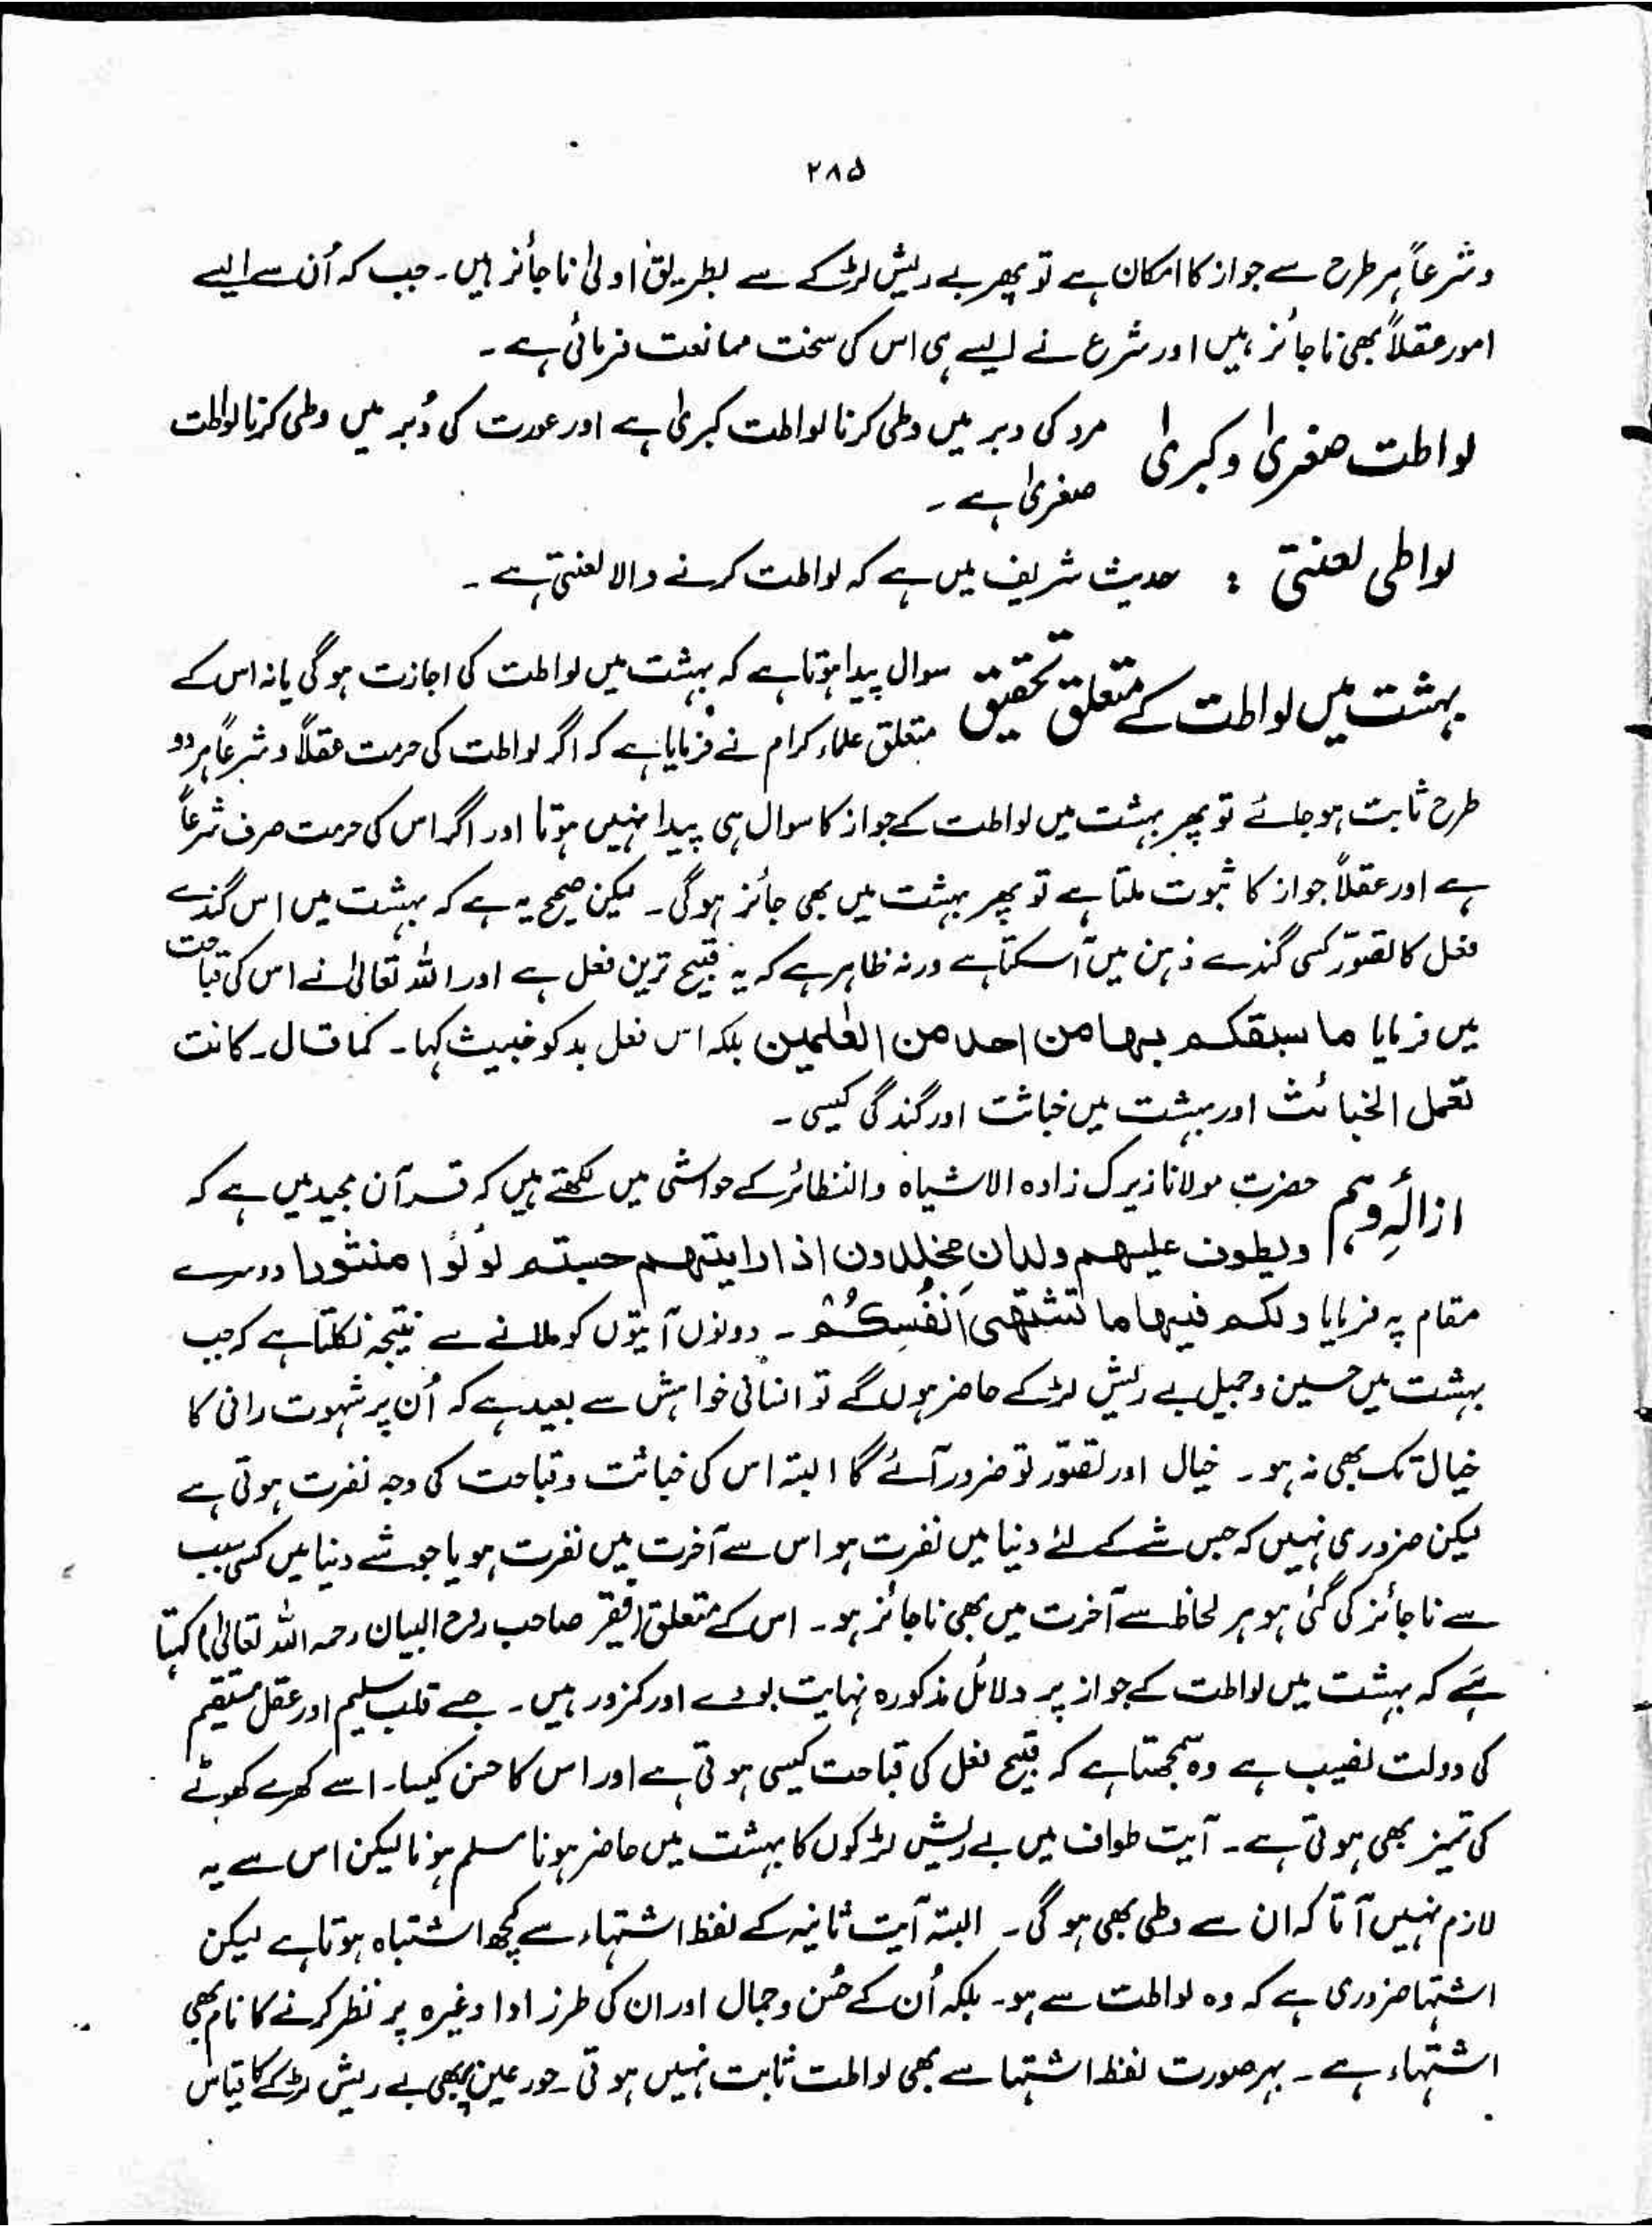 ۲۸۵
وشرعاً ہر طرح سے جواز کا امکان ہے تو پھر بے ریش لڑکے سے بطریق اولیٰ ناجائز ہیں۔ جب کہ اُن سے ایسے
امور عقلاً بھی ناجائز ہیں اور شرع نے ایسے ہی اس کی سخت ممانعت فرمائی ہے۔
لواطت صغریٰ و کبریٰ مرد کی دبر میں وطی کرنا لواطت کبریٰ ہے اور عورت کی دُبر میں وطی کرنا لواطت
صغریٰ ہے۔
لواطی لعنتی : حدیث شریف میں ہے کہ لواطت کرنے والا لعنتی ہے۔
بہشت میں لواطت کے متعلق تحقیق سوال پیدا ہوتا ہے کہ بہشت میں لواطت کی اجازت ہوگی یا نہ اس کے
متعلق علماء کرام نے فرمایا ہے کہ اگر لواطت کی حرمت عقلاً و شرعاً ہر دو
طرح ثابت ہو جائے تو پھر بہشت میں لواطت کے جواز کا سوال ہی پیدا نہیں ہوتا اور اگر اس کی حرمت صرف شرعاً
ہے اور عقلاً جواز کا ثبوت ملتا ہے تو پھر بہشت میں بھی جائز ہوگی۔ لیکن صحیح یہ ہے کہ بہشت میں اس گندے
فعل کا تصوّر کسی گندے ذہن میں آ سکتا ہے ورنہ ظاہر ہے کہ یہ قبیح ترین فعل ہے اور اللہ تعالیٰ نے اس کی قباحت
میں فرمایا ما سبقکم بہا من احد من العٰلمین بلکہ اس فعل بد کو خبیث کہا۔ کما قال۔ کانت
تعمل الخبائث اور بہشت میں خباثت اور گندگی کیسی۔
ازالۂ وہم حضرت مولانا زیرک زادہ الاشباہ والنظائر کے حواشی میں لکھتے ہیں کہ قرآن مجید میں ہے کہ
ویطوف علیہم ولدان مخلدون اذا رایتہم حسبتم لؤلؤا منثورا دوسرے
مقام پہ فرمایا ولکم فیہا ما تشتھی اَنفُسِکُمْ۔ دونوں آیتوں کو ملانے سے نتیجہ نکلتا ہے کہ جب
بہشت میں حسین و جمیل بے ریش لڑکے حاضر ہوں گے تو انسانی خواہش سے بعید ہے کہ اُن پر شہوت رانی کا
خیال تک بھی نہ ہو۔ خیال اور تصوّر تو ضرور آئے گا البتہ اس کی خباثت و قباحت کی وجہ نفرت ہوتی ہے
لیکن ضروری نہیں کہ جس شے کے لئے دنیا میں نفرت ہو اس سے آخرت میں نفرت ہو یا جو شے دنیا میں کسی سبب
سے ناجائز کی گئی ہو ہر لحاظ سے آخرت میں بھی ناجائز ہو۔ اس کے متعلق (فقیر صاحب روح البیان رحمہ اللہ تعالیٰ) کہتا
ہے کہ بہشت میں لواطت کے جواز پر دلائل مذکورہ نہایت بودے اور کمزور ہیں۔ جسے قلب سلیم اور عقل مستقیم
کی دولت نصیب ہے وہ سمجھتا ہے کہ قبیح فعل کی قباحت کیسی ہوتی ہے اور اس کا حسن کیسا۔ اسے کھرے کھوٹے
کی تمیز بھی ہوتی ہے۔ آیت طواف میں بے ریش لڑکوں کا بہشت میں حاضر ہونا مسلم ہونا لیکن اس سے یہ
لازم نہیں آتا کہ ان سے وطی بھی ہوگی۔ البتہ آیت ثانیہ کے لفظ اشتہاء سے کچھ اشتباہ ہوتا ہے لیکن
اشتہا ضروری ہے کہ وہ لواطت سے ہو۔ بلکہ اُن کے حُسن و جمال اور ان کی طرز ادا وغیرہ پر نظر کرنے کا نام بھی
اشتہاء ہے۔ بہر صورت لفظ اشتہا سے بھی لواطت ثابت نہیں ہوتی۔ حور عین پر بھی بے ریش لڑکے کا قیاس